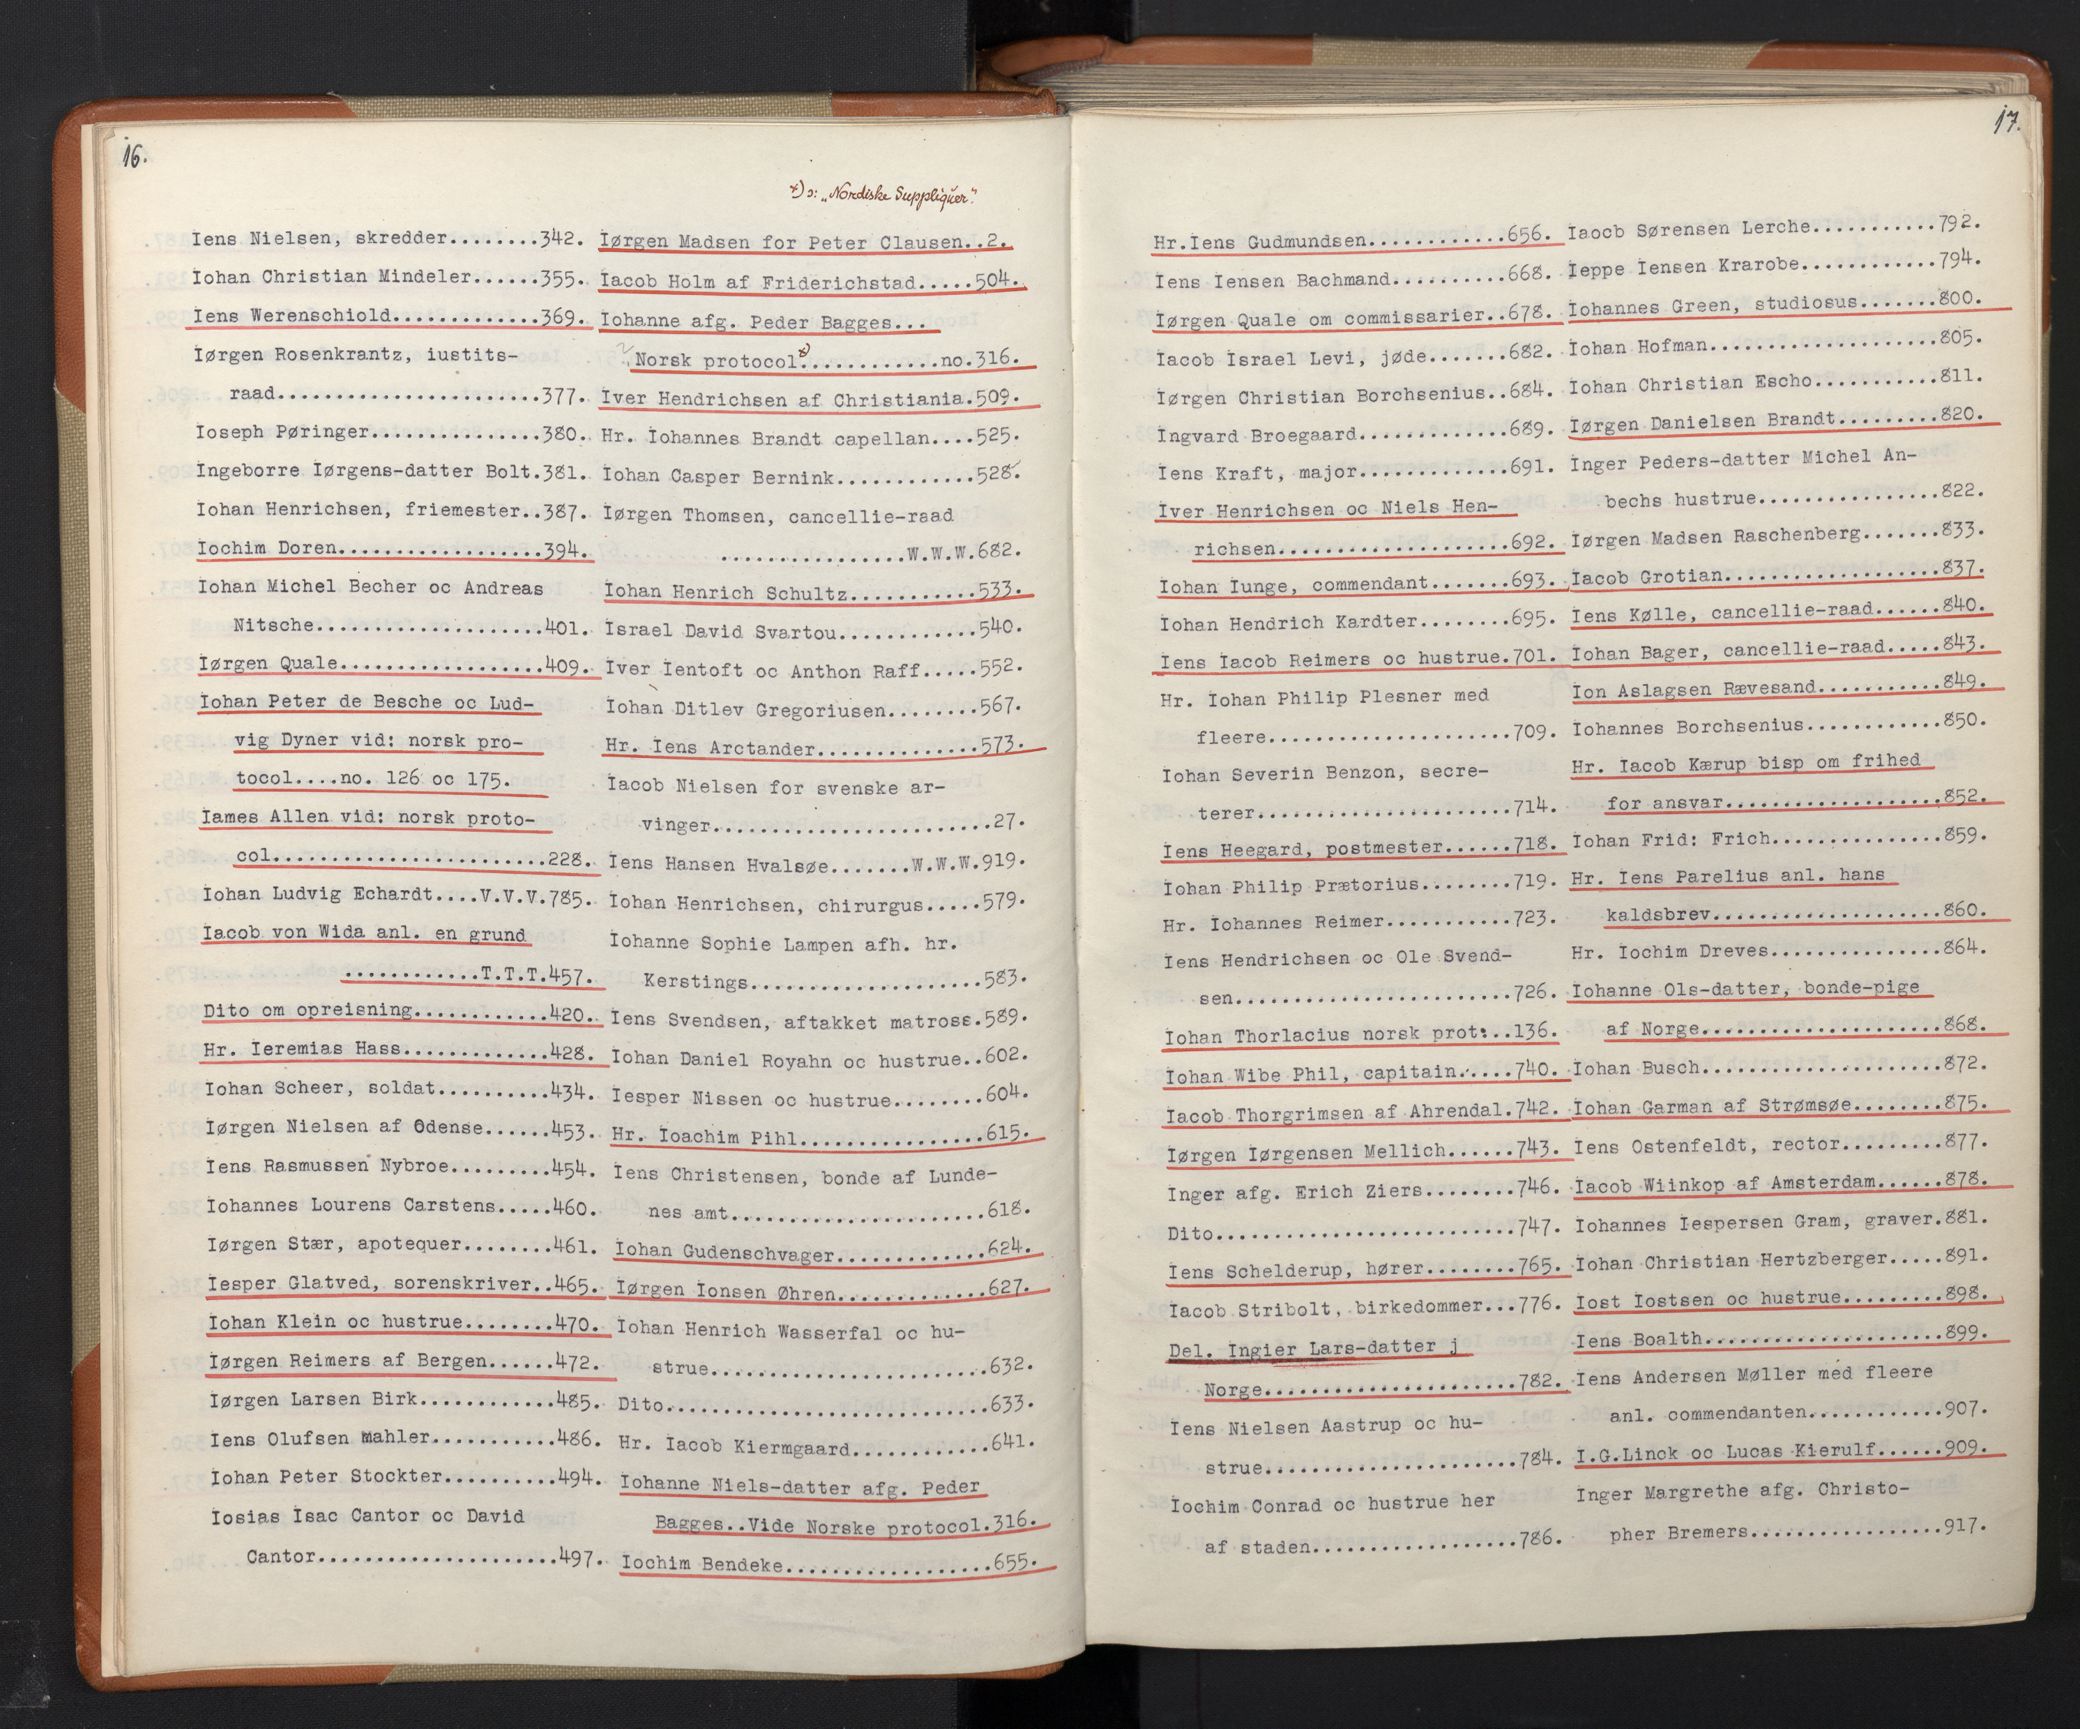 16.
x) ɔ: „Nordiske Suppliquer."
Iens Nielsen, skredder........342.
Iohan Christian Mindeler......355.
Iens Werenschiold.............369.
Iørgen Rosenkrantz, iustits-
raad.......................377.
Ioseph Pøringer...............380.
Ingeborre Iørgens-datter Bolt.381.
Iohan Henrichsen, friemester..387.
Iochim Doren..................394.
Iohan Michel Becher oc Andreas
Nitsche....................401.
Iørgen Quale..................409.
Iohan Peter de Besche oc Lud-
vig Dyner vid: norsk pro-
tocol....no. 126 oc 175.
Iames Allen vid: norsk proto-
col........................228.
Iohan Ludvig Echardt....V.V.V.785.
Iacob von Wida anl. en grund
............T.T.T.457.
Dito om opreisning............420.
Hr. Ieremias Hass.............428.
Iohan Scheer, soldat..........434.
Iørgen Nielsen af Odense......453.
Iens Rasmussen Nybroe.........454.
Iohannes Lourens Carstens.....460.
Iørgen Stær, apotequer........461.
Iesper Glatved, sorenskriver..465.
Iohan Klein oc hustrue........470.
Iørgen Reimers af Bergen......472.
Iørgen Larsen Birk............485.
Iens Olufsen Mahler...........486.
Iohan Peter Stockter..........494.
Iosias Isac Cantor oc David
Cantor.....................497.
Iørgen Madsen for Peter Clausen..2.
Iacob Holm af Friderichstad.....504.
Iohanne afg. Peder Bagges...
Norsk protocol x)............no.316.
Iver Hendrichsen af Christiania.509.
Hr. Iohannes Brandt capellan....525.
Iohan Casper Bernink............528.
Iørgen Thomsen, cancellie-raad
................W.W.W.682.
Iohan Henrich Schultz...........533.
Israel David Svartou............540.
Iver Ientoft oc Anthon Raff.....552.
Iohan Ditlev Gregoriusen........567.
Hr. Iens Arctander..............573.
Iacob Nielsen for svenske ar-
vinger........................27.
Iens Hansen Hvalsøe.......W.W.W.919.
Iohan Henrichsen, chirurgus.....579.
Iohanne Sophie Lampen afh. hr.
Kerstings....................583.
Iens Svendsen, aftakket matross.589.
Iohan Daniel Royahn oc hustrue..602.
Iesper Nissen oc hustrue........604.
Hr. Ioachim Pihl................615.
Iens Christensen, bonde af Lunde-
nes amt......................618.
Iohan Gudenschvager.............624.
Iørgen Ionsen Øhren.............627.
Iohan Henrich Wasserfal oc hu-
strue........................632.
Dito............................633.
Hr. Iacob Kiermgaard............641.
Iohanne Niels-datter afg. Peder
Bagges..Vide Norske protocol.316.
Iochim Bendeke..................655.
17.
Hr.Iens Gudmundsen............656.
Iens Iensen Bachmand..........668.
Iørgen Quale om commissarier..678.
Iacob Israel Levi, jøde.......682.
Iørgen Christian Borchsenius..684.
Ingvard Broegaard.............689.
Iens Kraft, major.............691.
Iver Henrichsen oc Niels Hen-
richsen....................692.
Iohan Iunge, commendant.......693.
Iohan Hendrich Kardter........695.
Iens Iacob Reimers oc hustrue.701.
Hr. Iohan Philip Plesner med
fleere.....................709.
Iohan Severin Benzon, secre-
terer......................714.
Iens Heegard, postmester......718.
Iohan Philip Prætorius........719.
Hr. Iohannes Reimer...........723.
Iens Hendrichsen oc Ole Svend-
sen........................726.
Iohan Thorlacius norsk prot:..136.
Iohan Wibe Phil, capitain.....740.
Iacob Thorgrimsen af Ahrendal.742.
Iørgen Iørgensen Mellich......743.
Inger afg. Erich Ziers........746.
Dito..........................747.
Iens Schelderup, hører........765.
Iacob Stribolt, birkedommer...776.
Del. Ingier Lars-datter j
Norge......................782.
Iens Nielsen Aastrup oc hu-
strue......................784.
Iochim Conrad oc hustrue her
af staden..................786.
Iaocb Sørensen Lerche...........792.
Ieppe Iensen Krarobe............794.
Iohannes Green, studiosus.......800.
Iohan Hofman....................805.
Iohan Christian Escho...........811.
Iørgen Danielsen Brandt.........820.
Inger Peders-datter Michel An-
bechs hustrue................822.
Iørgen Madsen Raschenberg.......833.
Iacob Grotian...................837.
Iens Kølle, cancellie-raad......840.
Iohan Bager, cancellie-raad.....843.
Ion Aslagsen Rævesand...........849.
Iohannes Borchsenius............850.
Hr. Iacob Kærup bisp om frihed
for ansvar...................852.
Iohan Frid: Frich...............859.
Hr. Iens Parelius anl. hans
kaldsbrev....................860.
Hr. Iochim Dreves...............864.
Iohanne Ols-datter, bonde-pige
af Norge.....................868.
Iohan Busch.....................872.
Iohan Garman af Strømsøe........875.
Iens Ostenfeldt, rector.........877.
Iacob Wiinkop af Amsterdam......878.
Iohannes Iespersen Gram, graver.881.
Iohan Christian Hertzberger.....891.
Iost Iostsen oc hustrue.........898.
Iens Boalth.....................899.
Iens Andersen Møller med fleere
anl. commendanten............907.
I.G.Linck oc Lucas Kierulf......909.
Inger Margrethe afg. Christo-
pher Bremers.................917.